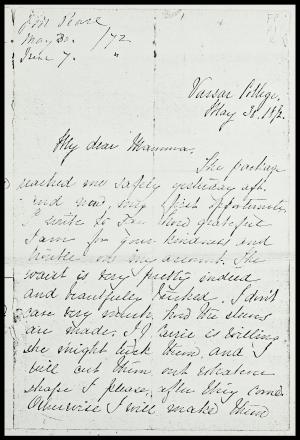 May 30. /72
June 7. "
Vassar College.
May 30. 1872.
My dear Mamma.
The package
reached me safely yesterday aft.
and now, my first opportunity
I write to tell how grateful
I am for your kindness and
trouble on my account. The
waist is very pretty indeed
and beautifully tucked. I don't
care very much how the sleeves
are made. If Carrie is willing
she might tuck them, and I
will cut them out whatever
shape I please, after they come.
Otherwise I will make them